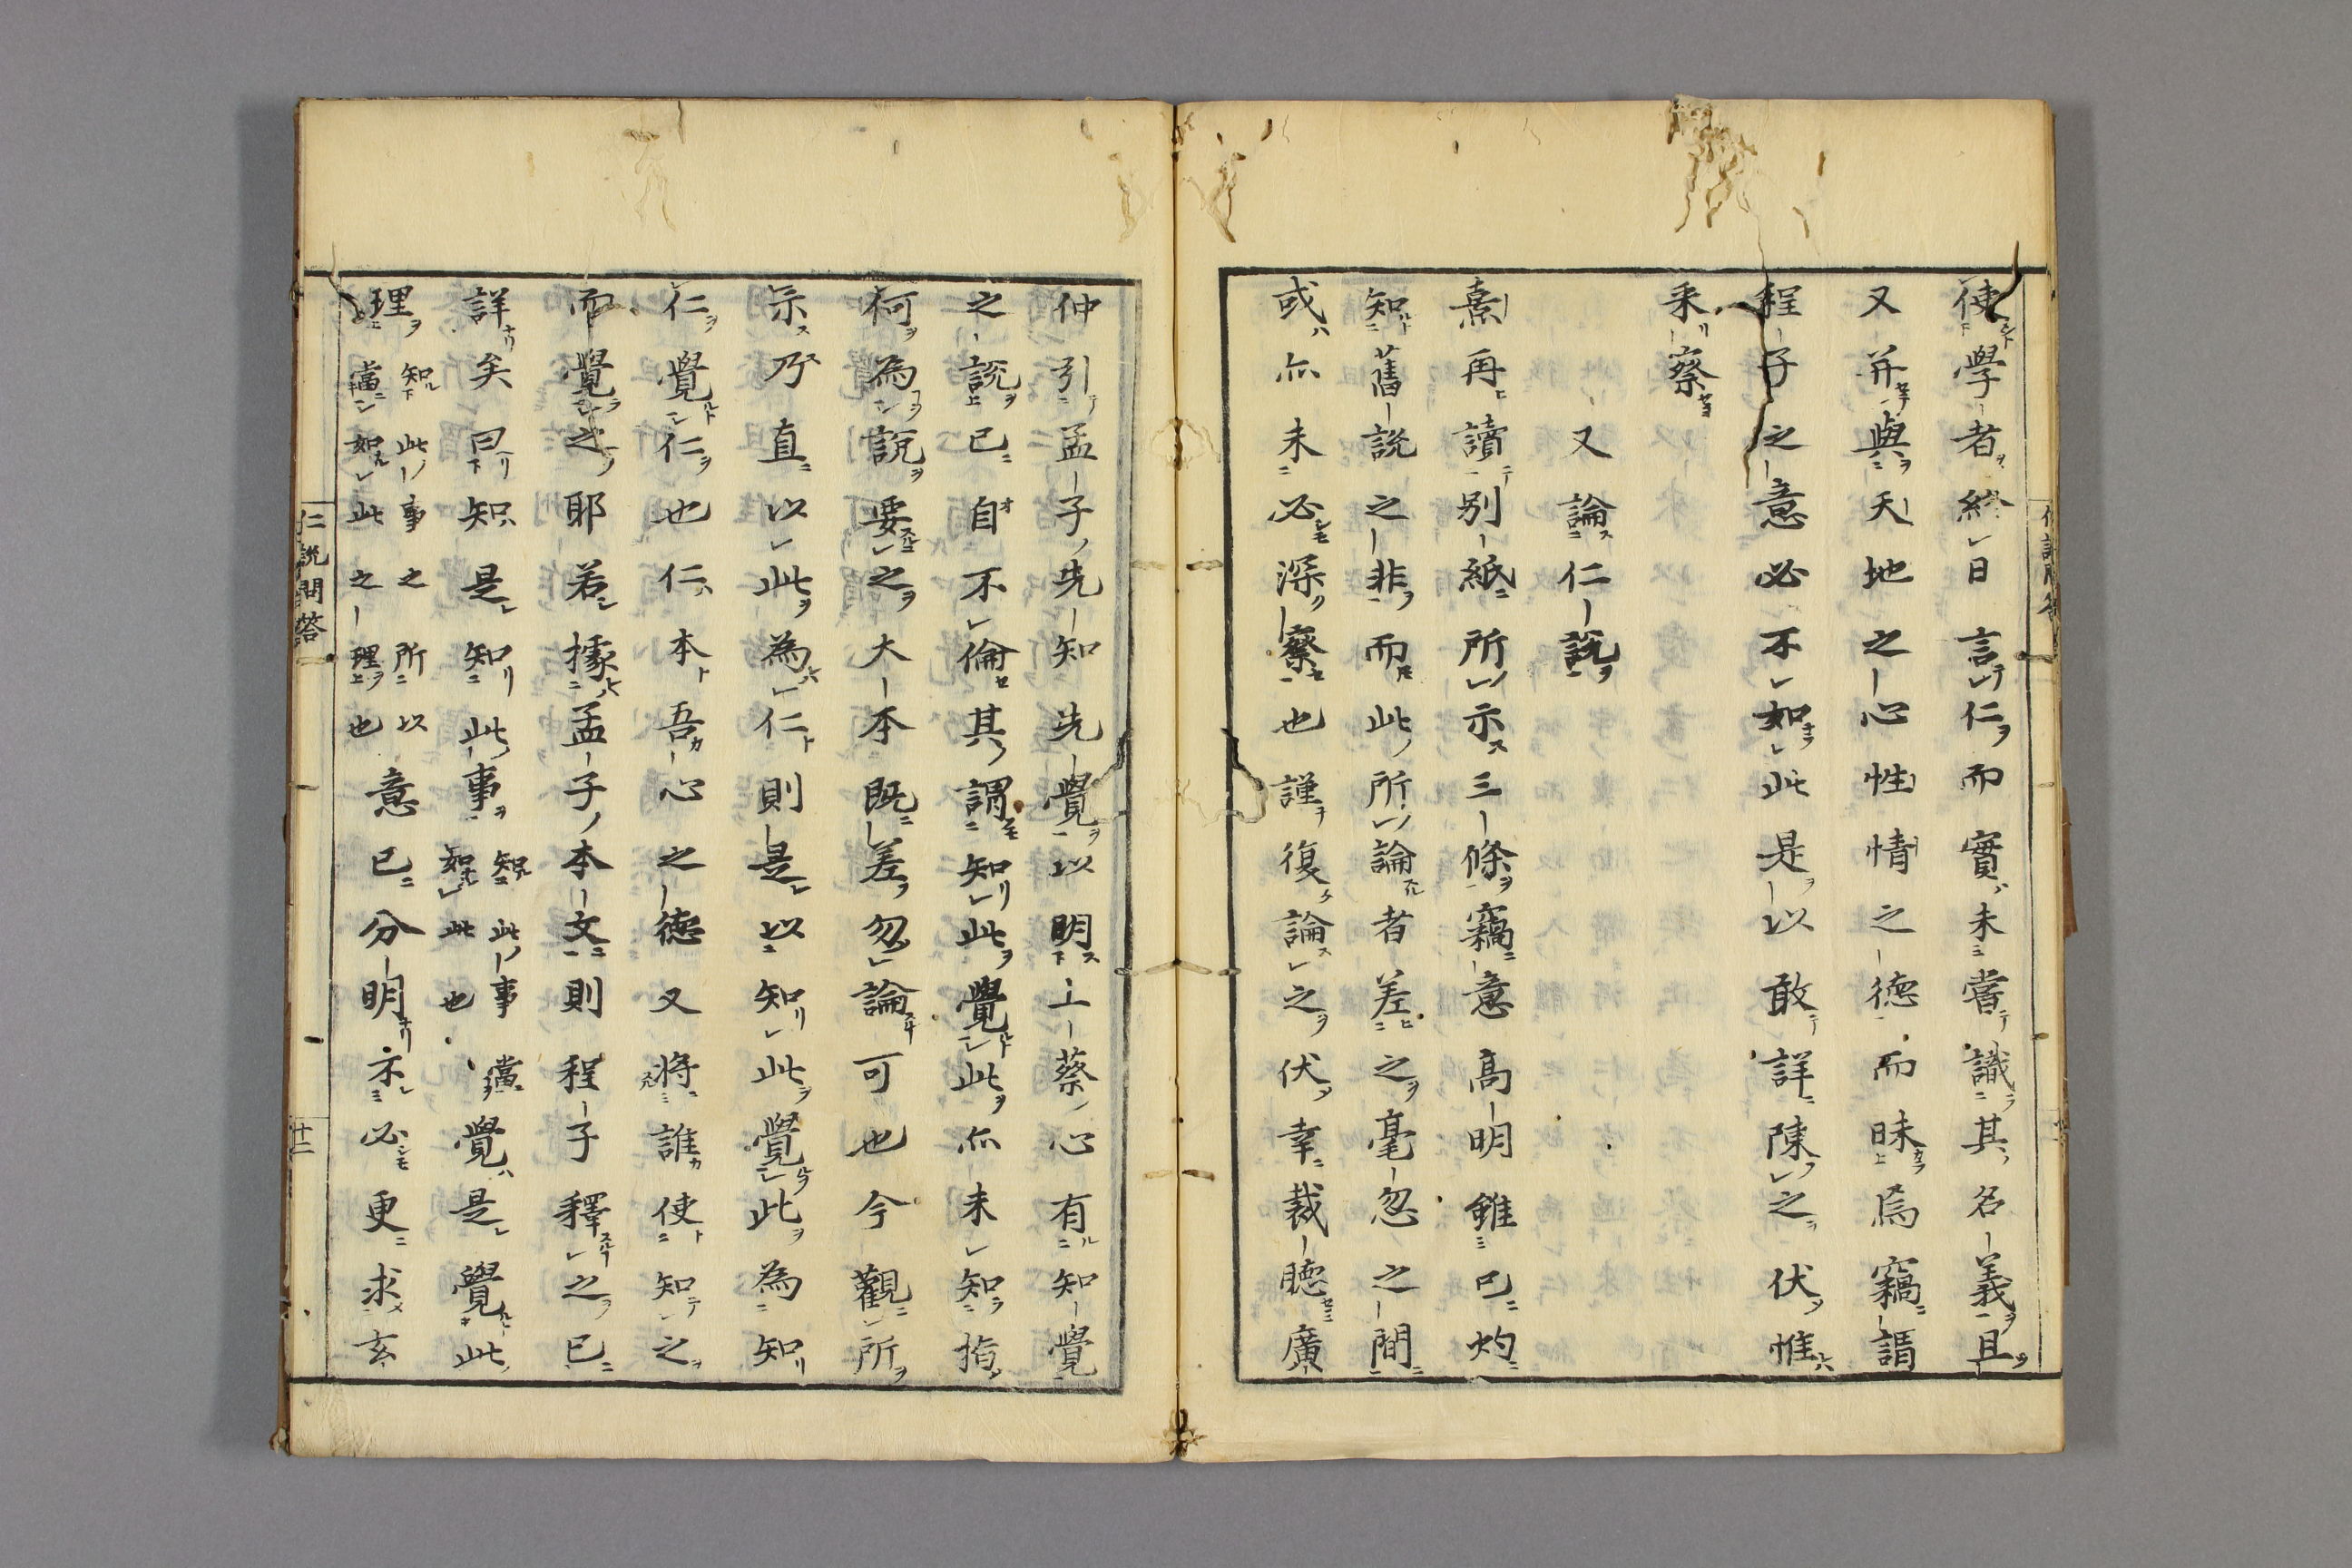 使學者終日言仁而實未嘗識其名義且
又并與天地之心性情之德而昧焉竊謂
程子之意必不如此是以敢詳陳之伏惟
采察
又論仁說
熹再讀別紙所示三條竊意高明雖已灼
知舊說之非而此所論者差之毫忽之間
或亦未必深察也謹復論之伏幸裁聽廣
仲引孟子先知先覺以明上蔡心有知覺
之說已自不倫其謂知此覺此亦未知指
何為說要之大本既差勿論可也今觀所
示乃直以此為仁則是以知此覺此為知
仁覺仁也仁本吾心之德又將誰使知之
而覺之耶若據孟子本文則程子釋之已
詳矣曰知是知此事知此事當如此也覺是覺此
理知此事之所以當如此之理也意已分明不必更求玄
仁說問答
十二